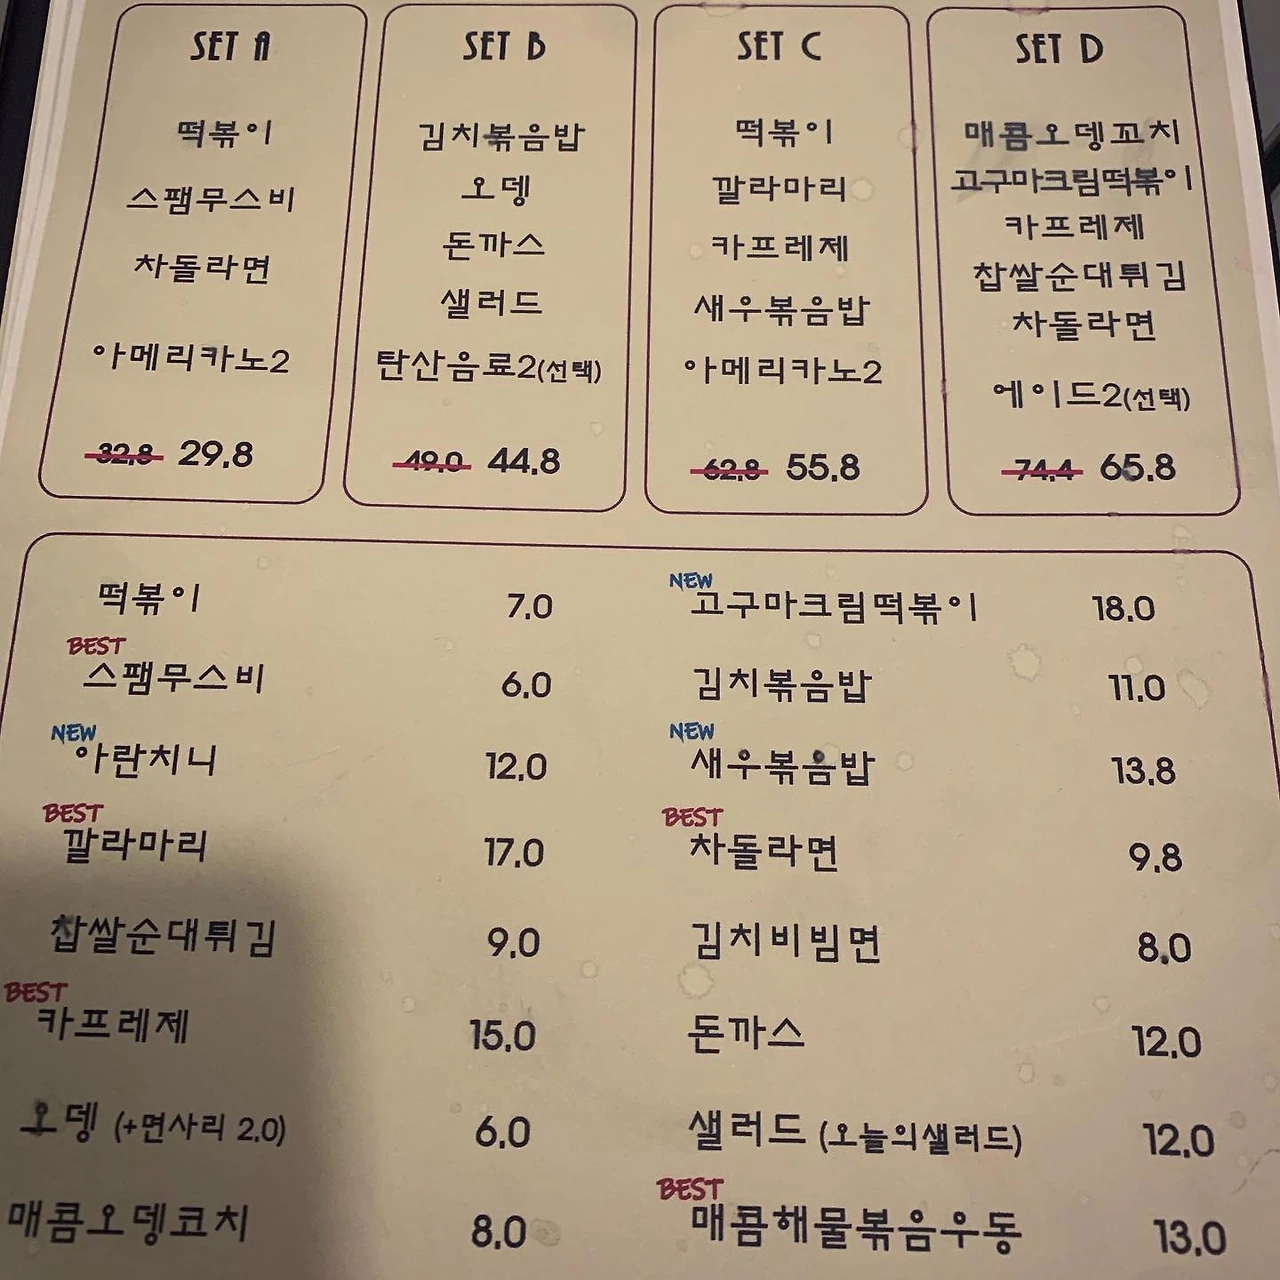 SET A
떡볶이
스팸무스비
차돌라면
아메리카노2
32.8 29.8
SET B
김치볶음밥
오뎅
돈까스
샐러드
탄산음료2(선택)
49.0 44.8
SET C
떡볶이
깔라마리
카프레제
새우볶음밥
아메리카노2
62.8 55.8
SET D
매콤오뎅꼬치
고구마크림떡볶이
카프레제
찹쌀순대튀김
차돌라면
에이드2(선택)
74.4 65.8
떡볶이 7.0
BEST
스팸무스비 6.0
NEW
아란치니 12.0
BEST
깔라마리 17.0
찹쌀순대튀김 9.0
BEST
카프레제 15.0
오뎅 (+면사리 2.0) 6.0
매콤오뎅코치 8.0
NEW
고구마크림떡볶이 18.0
김치볶음밥 11.0
NEW
새우볶음밥 13.8
BEST
차돌라면 9.8
김치비빔면 8.0
돈까스 12.0
샐러드 (오늘의샐러드) 12.0
BEST
매콤해물볶음우동 13.0